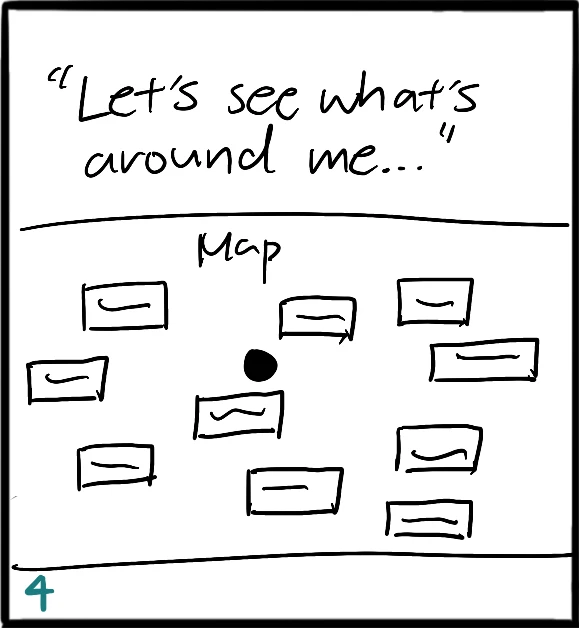 “Let's see what's
around me...”
Map
4